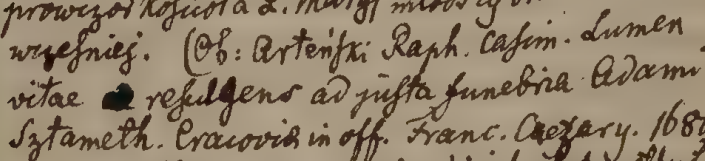 prowizor kościoła
wcześniej. (Ob: Arteński Raph. Casim. Lumen
vitae resulgens ad justa funebria Adami
Sztameth. Cracoviæ in off. Franc. Cezary. 168